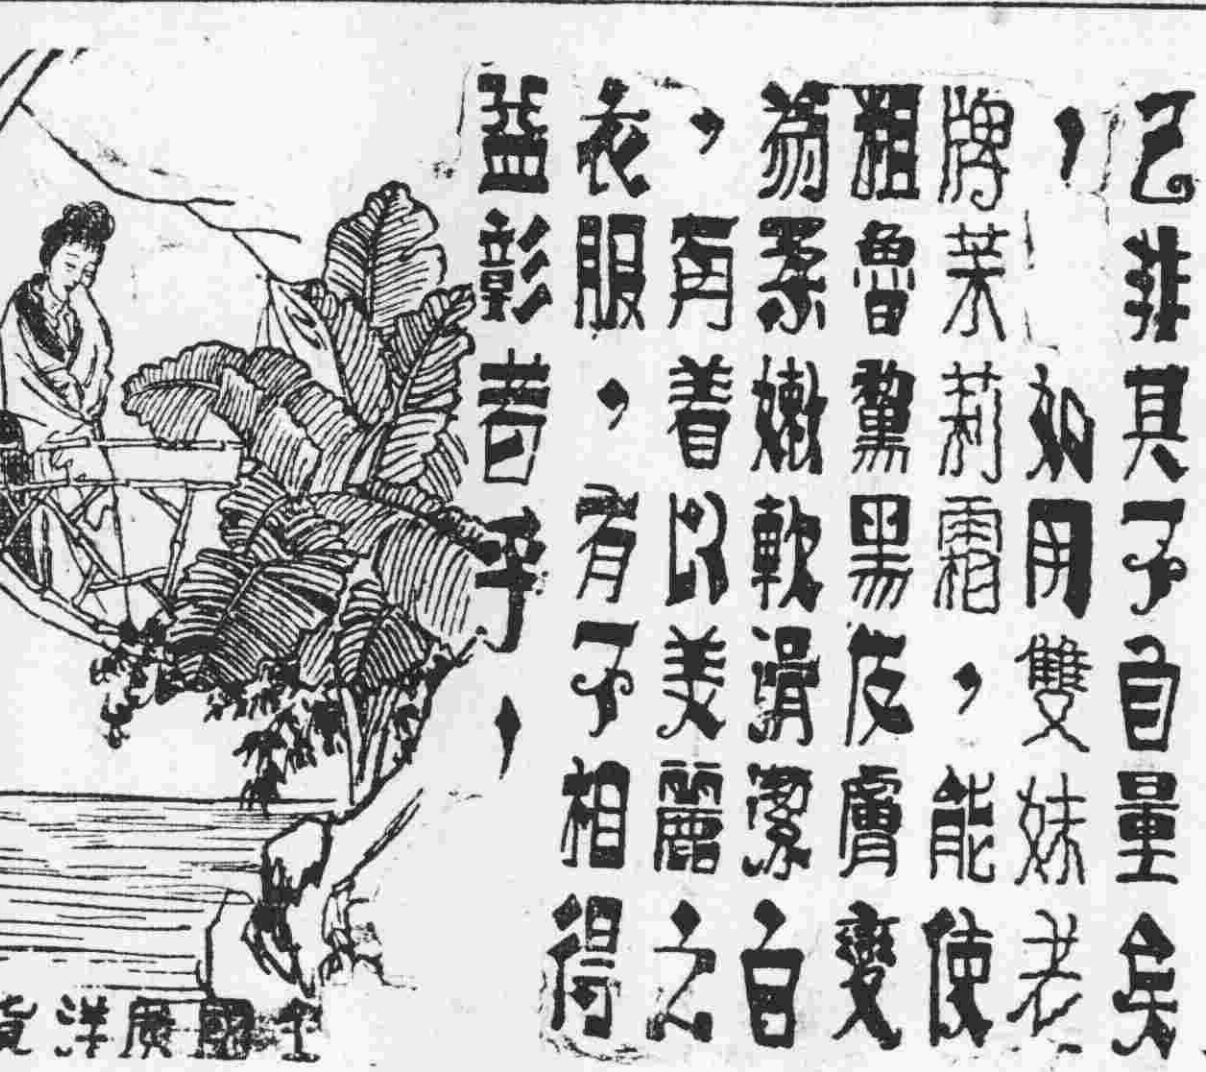 己非其不自量矣
，如用雙妹老
牌茉莉霜，能使
粗魯黧黑皮膚變
為柔嫩軟滑潔白
，再着以美麗之
衣服，有不相得
益彰者乎，
全國廣洋貨